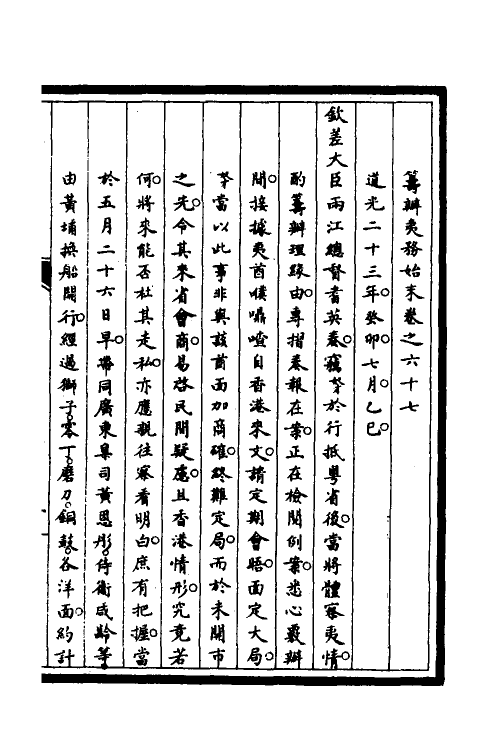 籌辦夷務始末卷之六十七
道光二十三年。癸卯。七月。乙巳。
欽差大臣兩江總督耆英奏。竊奴才於行抵粵省後。當將體察夷情。
酌籌辦理緣由。專摺奏報在案。正在檢閱例案。悉心覈辦
間。接據夷酋㗒嘁喳自香港來文。請定期會晤面定大局。
奴才當以此事非與該酋面加商確。終難定局。而於未開市
之先。令其來省會商。易啓民間疑慮。且香港情形。究竟若
何。將來能否杜其走私。亦應親往察看明白。庶有把握。當
於五月二十六日早。帶同廣東臬司黃恩彤。侍衛咸齡等。
由黃埔換船開行。經過獅子。零丁。磨刀。銅鼓。各洋面。約計